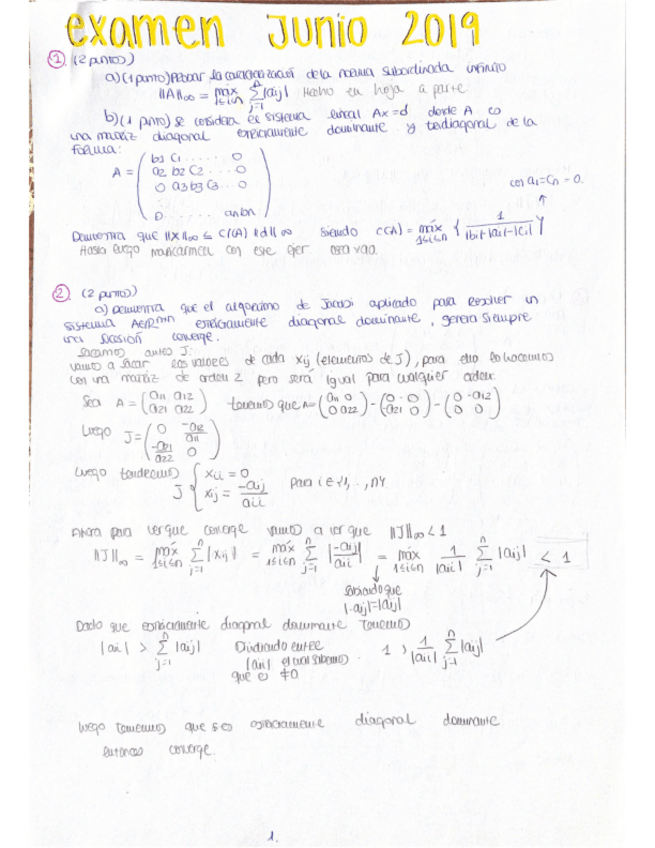 examen Junio 2019
① (2 puntos)
a) (1 punto) Probar la caracterización de la norma subordinada infinito
||A||∞ = máx 1≤i≤n Σ j=1 n |aij| Hecho en hoja a parte
b) (1 punto) se considera el sistema lineal Ax=d donde A es
una matriz diagonal estrictamente dominante y tridiagonal de la
forma:
A = ( b1 C1 ...... 0
a2 b2 C2 .... 0
0 a3 b3 C3 ... 0
0 ...... an bn )
con a1=Cn=0.
Demuestra que ||x||∞ ≤ C(A) ||d||∞ siendo C(A) = máx 1≤i≤n { 1 / |bi|-|ai|-|ci| }
Hasta luego Maricarmen con este ejer
② (2 puntos)
a) Demuestra que el algoritmo de Jacobi aplicado para resolver un
sistema estrictamente diagonal dominante, genera siempre
una sucesión converge.
Sacamos antes J:
vamos a sacar los valores de cada xij (elementos de J), para ello lo hacemos
con una matriz de orden 2 pero será igual para cualquier orden.
Sea A = ( a11 a12
a21 a22 ) tenemos que A = ( a11 0
0 a22 ) - ( 0 0
-a21 0 ) - ( 0 -a12
0 0 )
Luego J = ( 0 -a12/a11
-a21/a22 0 )
Luego tendremos J { xii = 0
xij = -aij/aii para i ∈ {1,..,n}
Ahora para ver que converge vamos a ver que ||J||∞ < 1
||J||∞ = máx 1≤i≤n Σ j=1 n |xij| = máx 1≤i≤n Σ j=1 n |-aij/aii| = máx 1≤i≤n 1/|aii| Σ j=1 n |aij| < 1
sabiendo que
|-aij|=|aij|
Dado que estrictamente diagonal dominante tenemos
|aii| > Σ j=1 n |aij| Dividiendo entre 1 > 1/|aii| Σ j=1 n |aij|
|aii| el cual sabemos
que es ≠0
Luego tenemos que si es estrictamente diagonal dominante
entonces converge.
1.